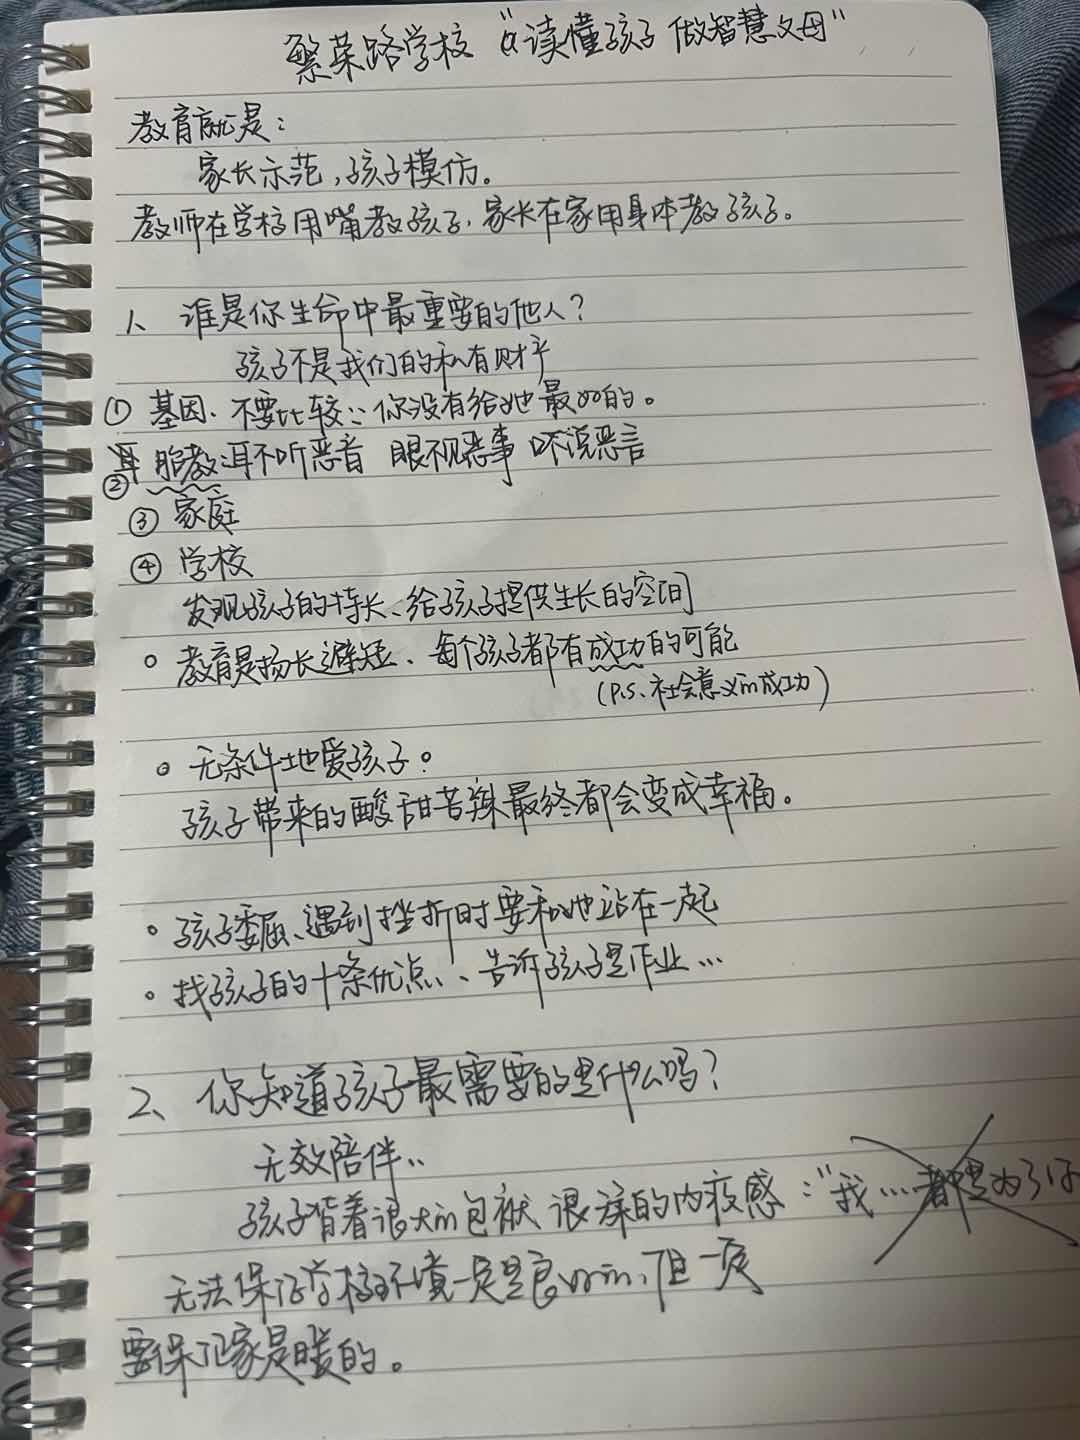 繁荣路学校 “读懂孩子 做智慧父母”
教育就是:
家长示范,孩子模仿。
教师在学校用嘴教孩子,家长在家用身体教孩子。
1、谁是你生命中最重要的他人?
孩子不是我们的私有财产
① 基因、不要比较:你没有给她最好的。
② 胎教:耳不听恶音 眼不视恶事 口不说恶言
③ 家庭
④ 学校
发现孩子的特长、给孩子提供生长的空间
○ 教育是扬长避短、每个孩子都有成功的可能
(P.S.社会意义的成功)
○ 无条件地爱孩子。
孩子带来的酸甜苦辣最终都会变成幸福。
○ 孩子委屈、遇到挫折时要和她站在一起
○ 找孩子的十条优点、告诉孩子是作业…
2、你知道孩子最需要的是什么吗?
无效陪伴..
孩子背着很大的包袱 很深的内疚感:“我…都是为了你
无法保证学校环境一定是良好的,但一定
要保证家是暖的。